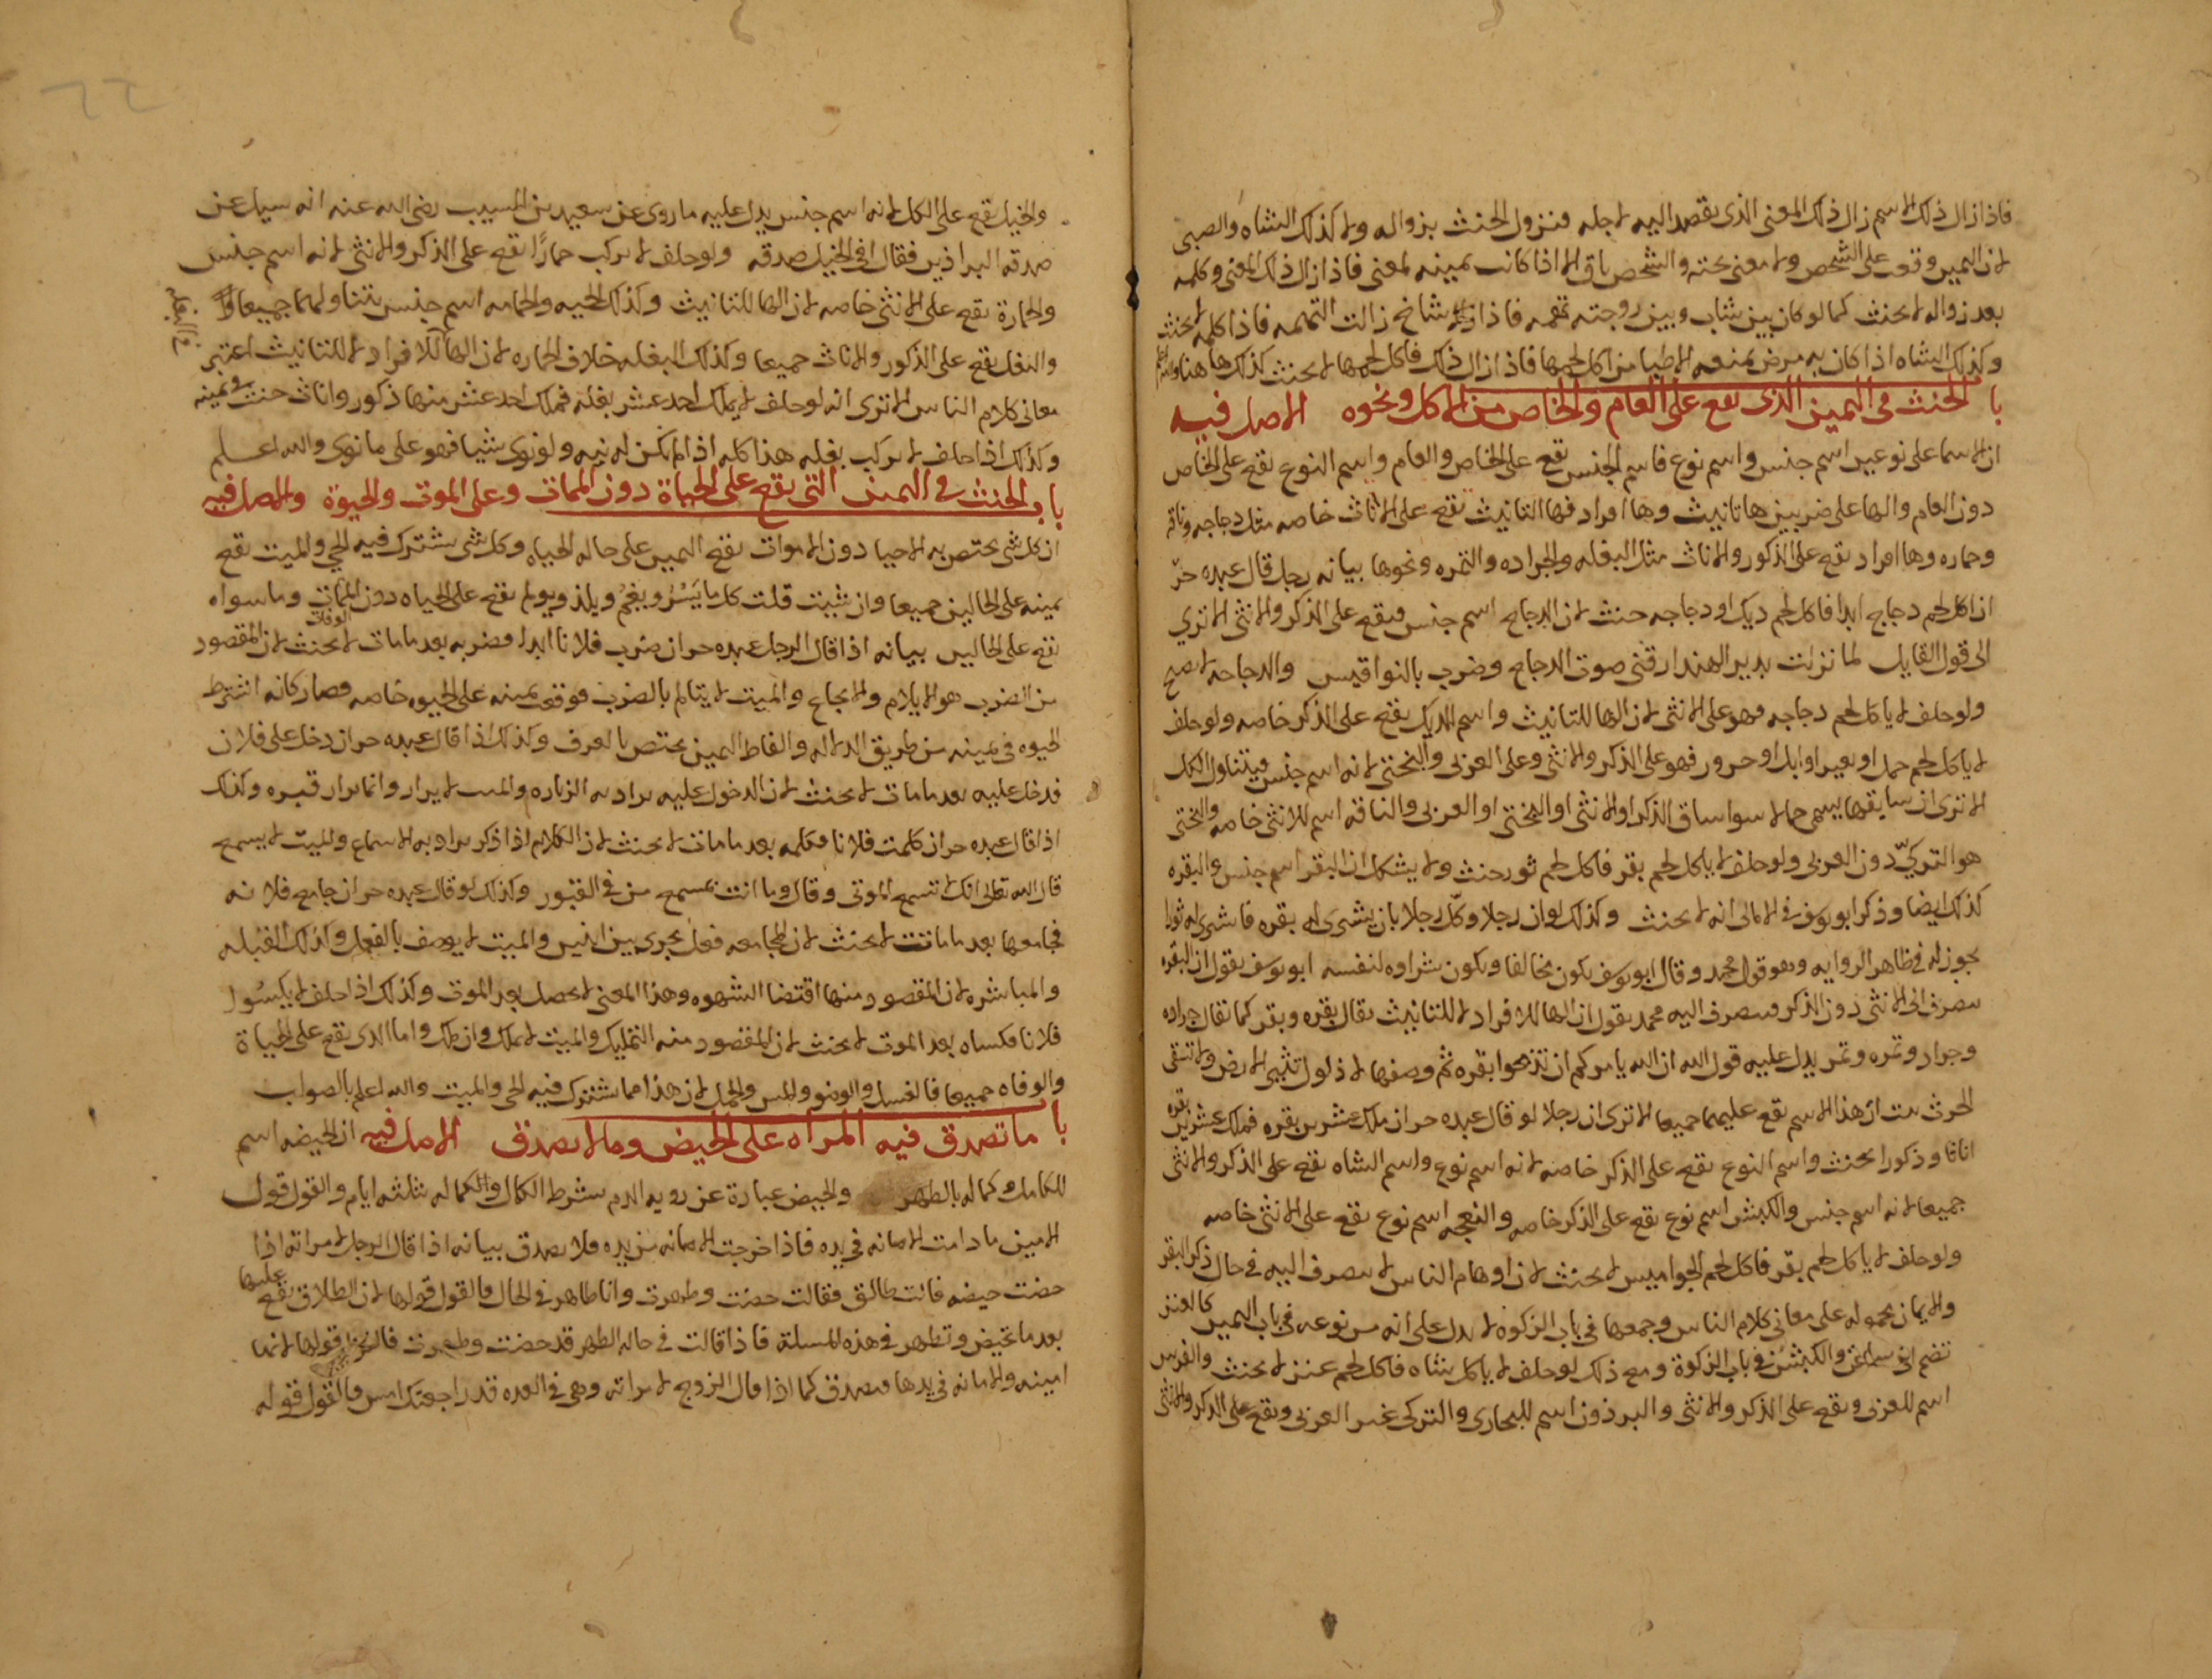 فاذا زال ذلك الاسم زال ذلك المعنى الذى يقصد اليه لاجله فنزول الحنث بزواله ولا كذلك الشاه والصبى
لان اليمين وقعت على الشخص ولا معنى تحته والشخص باق الا اذا كانت يمينه لمعنى فاذا زال ذلك المعنى وكلمه
بعد زواله لا يحنث كما لو كان بين شاب وبين زوجته تهمه فاذا شاخ زالت التهمه فاذا كلمه لا يحنث
وكذلك الشاه اذا كان به مرض يمنعه الاطبا من اكل لحمها فاذا زال ذلك فاكل لحمها لا يحنث كذلك هاهنا والله اعلم
باب الحنث فى اليمين الذى يقع على العام والخاص من الاكل ونحوه الاصل فيه
ان الاسما على نوعين اسم جنس واسم نوع فاسم الجنس يقع على الخاص والعام واسم النوع يقع على الخاص
دون العام والها على ضربين ها تانيث وها افراد فها التانيث تقع على الاناث خاصه مثل دجاجه وناقه
وحماره وها افراد تقع على الذكور والاناث مثل البغله والجراده والتمره ونحوها بيانه رجل قال عبده حرّ
ان اكل لحم دجاج ابدا فاكل لحم ديك او دجاجه حنث لان الدجاج اسم جنس فيقع على الذكر والانثى الا ترى
الى قول القايل لما نزلت بدير الهند ارقنى صوت الدجاج وضرب بالنواقيس والدجاجه لا تصيح
ولو حلف لا ياكل لحم دجاجه فهو على الانثى لان الها للتانيث واسم الديك يقع على الذكر خاصه ولو حلف
لا ياكل لحم جمل او بعير او ابل او جزور فهو على الذكر والانثى وعلى العربى والبختى لانه اسم جنس فيتناول الكل
الا ترى ان سايقها يسمى جمالا سوا ساق الذكر او الانثى او البختى او العربى والناقه اسم للانثى خاصه والبختى
هو التركىّ دون العربى ولو حلف لا ياكل لحم بقر فاكل لحم ثور حنث ولا يشكل ان البقر اسم جنس والبقره
كذلك ايضا وذكر ابو يوسف فى الامالى انه لا يحنث وكذلك لو ان رجلا وكّل رجلا بان يشترى له بقره فاشترى له ثورا
يجوز له فى ظاهر الروايه وهو قول محمد وقال ابو يوسف يكون مخالفا ويكون شراوه لنفسه ابو يوسف يقول ان البقره
تنصرف الى الانثى دون الذكر فتنصرف اليه محمد يقول ان الها للافراد لا للتانيث يقال بقره وبقر كما يقال جراده
وجراد وتمره وتمر يدل عليه قول الله ان الله يامركم ان تذبحوا بقره ثم وصفها لا ذلول تثير الارض ولا تسقى
الحرث ثبت ان هذا الاسم يقع عليهما جميعا الا ترى ان رجلا لو قال عبده حر ان ملك عشرين بقره فملك عشرين بقره
اناثا وذكورا يحنث واسم النوع يقع على الذكر خاصه لانه اسم نوع واسم الشاه يقع على الذكر والانثى
جميعا لانه اسم جنس والكبش اسم نوع يقع على الذكر خاصه والنعجه اسم نوع تقع على الانثى خاصه
ولو حلف لا ياكل لحم بقر فاكل لحم الجواميس لا يحنث لان اوهام الناس لا تنصرف اليه فى حال ذكر البقر
والايمان محموله على معانى كلام الناس وجمعها فى باب الزكوه لا يدل على انه من نوعه فى باب اليمين كالعنز
تضم الى والكبش فى باب الزكوة ومع ذلك لو حلف لا ياكل شاه فاكل لحم عنز لا يحنث والفرس
اسم للعربى ويقع على الذكر والانثى والبرذون اسم للبخارى والتركى غير العربى ويقع على الذكر والانثى
والخيل يقع على الكل لانه اسم جنس يدل عليه ما روى عن سعيد بن المسيب رضى الله عنه انه سيل عن
صدقه البراذين فقال افى الخيل صدقه ولو حلف لا يركب حمارًا يقع على الذكر والانثى لانه اسم جنس
والحمارة تقع على الانثى خاصه لان الها للتانيث وكذلك الحيه والحمامه اسم جنس يتناولهما جميعا
والبغل يقع على الذكور والاناث جميعا وكذلك البغله خلاف الحماره لان الها للافراد لا للتانيث اعتبر
معانى كلام الناس الا ترى انه لو حلف لا يملك احد عشر بغله فملك احد عشر منها ذكور واناث حنث فى يمينه
وكذلك اذا حلف لا يركب بغله هذا كله اذا لم تكن له نيه ولو نوى شيا فهو على ما نوى والله اعلم
باب الحنث فى اليمين التى يقع على الحياة دون الممات وعلى الموت والحيوة والاصل فيه
ان كل شى يختص به الاحيا دون الاموات يقع اليمين على حاله الحياه وكل شى يشترك فيه الحى والميت يقع
يمينه على الحالين جميعا وان شيت قلت كل ما يَسُرُّ ويغُمُّ ويلذ ويولم يقع على الحياه دون الممات وما سواه
يقع على الحالين بيانه اذا قال الرجل عبده حر ان ضرب فلانا ابدا فضربه بعد ما مات لا يحنث لان المقصود
من الضرب هو الايلام والايجاع والميت لا يتالم بالضرب فوقع يمينه على الحيوه خاصه فصار كانه اشترط
الحيوه فى يمينه من طريق الدلاله والفاظ اليمين يختص بالعرف وكذلك اذا قال عبده حر ان دخل على فلان
فدخل عليه بعد ما مات لا يحنث لان الدخول عليه يراد به الزياره والميت لا يزار وانما يزار قبره وكذلك
اذا قال عبده حر ان كلمت فلانا فكلمه بعد ما مات لا يحنث لان الكلام اذا ذكر يراد به الاسماع والميت لا يسمع
قال الله تعالى انك لا تسمع الموتى وقال وما انت بمسمع من فى القبور وكذلك لو قال عبده حر ان جامع فلانه
فجامعها بعد ما ماتت لا يحنث لان المجامعه فعل يجرى بين اثنين والميت لا يوصف بالفعل وكذلك القبله
والمباشره لان المقصود منها اقتضا الشهوه وهذا المعنى لا يحصل بعد الموت وكذلك اذا حلف لا يكسُوا
فلانا فكساه بعد الموت لا يحنث لان المقصود منه التمليك والميت لا يملك وان ملك واما الذى يقع على الحياة
والوفاه جميعا فالغسل والوضو والمس والحمل لان هذا مما يشترك فيه الحى والميت والله اعلم بالصواب
باب ما تصدق فيه المراه على الحيض وما لا تصدق الاصل فيه ان الحيضه اسم
للكامل وكماله بالطهر والحيض عبارة عن رويه الدم بشرط الكمال والكماله ثلثه ايام والقول قول
الامين ما دامت الامانه فى يده فاذا خرجت الامانه من يده فلا يصدق بيانه اذا قال الرجل لامراته اذا
حضت حيضه فانت طالق فقالت حضت وطهرت وانا طاهر فى الحال فالقول قولها لان الطلاق يقع عليها
بعد ما تحيض وتطهر فى هذه المسلة فاذا قالت فى حاله الطهر قد حضت وطهرت فالقول قولها لانها
امينه والامانه فى يدها فتصدق كما اذا قال الزوج لامراته وهى فى العده قد راجعتك امس فالقول قوله